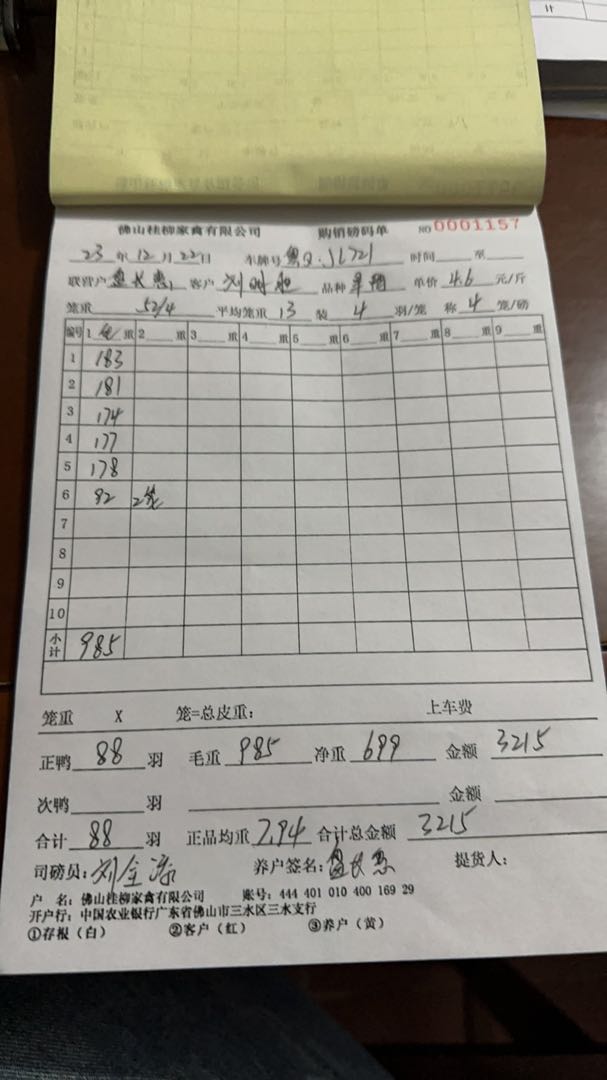 佛山桂柳家禽有限公司 购销磅码单 NO 0001157
23 年 12 月 22 日 车牌号 粤Q·JL721 时间 至
联营户 盘长惠 客户 品种 单价 4.6 元/斤
笼重 52/4 平均笼重 13 装 4 羽/笼 称 4 笼/磅
编号 1 重 2 重 3 重 4 重 5 重 6 重 7 重 8 重 9 重
1 183
2 181
3 174
4 177
5 178
6 92 2笼
7
8
9
10
小计 985
笼重 X 笼=总皮重: 上车费
正鸭 88 羽 毛重 985 净重 699 金额 3215
次鸭 羽 金额
合计 88 羽 正品均重 7.94 合计总金额 3215
司磅员: 刘金 养户签名: 盘长惠 提货人:
户 名: 佛山桂柳家禽有限公司 账号: 444 401 010 400 169 29
开户行: 中国农业银行广东省佛山市三水区三水支行
①存根（白） ②客户（红） ③养户（黄）